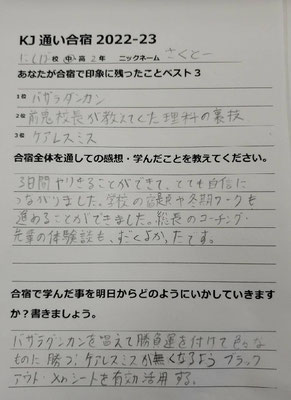 KJ 通い合宿 2022-23
校 中・高 2年 ニックネーム さくとー
あなたが合宿で印象に残ったことベスト3
1位 バサラダンカン
2位 前鬼校長が教えてくれた理科の裏技
3位 ケアレスミス
合宿全体を通しての感想・学んだことを教えてください。
3日間やりきることができて、とても自信に
つながりました。学校の冬期ワークも
進めることができました。総長のコーチング・
先輩の体験談も、すごくよかったです。
合宿で学んだ事を明日からどのようにいかしていきます
か?書きましょう。
バサラダンカンを唱えて勝負運を付けて色々な
ものに勝つ! ケアレスミスが無くなるよう ブラック
アウト・Xnシートを有効活用する。